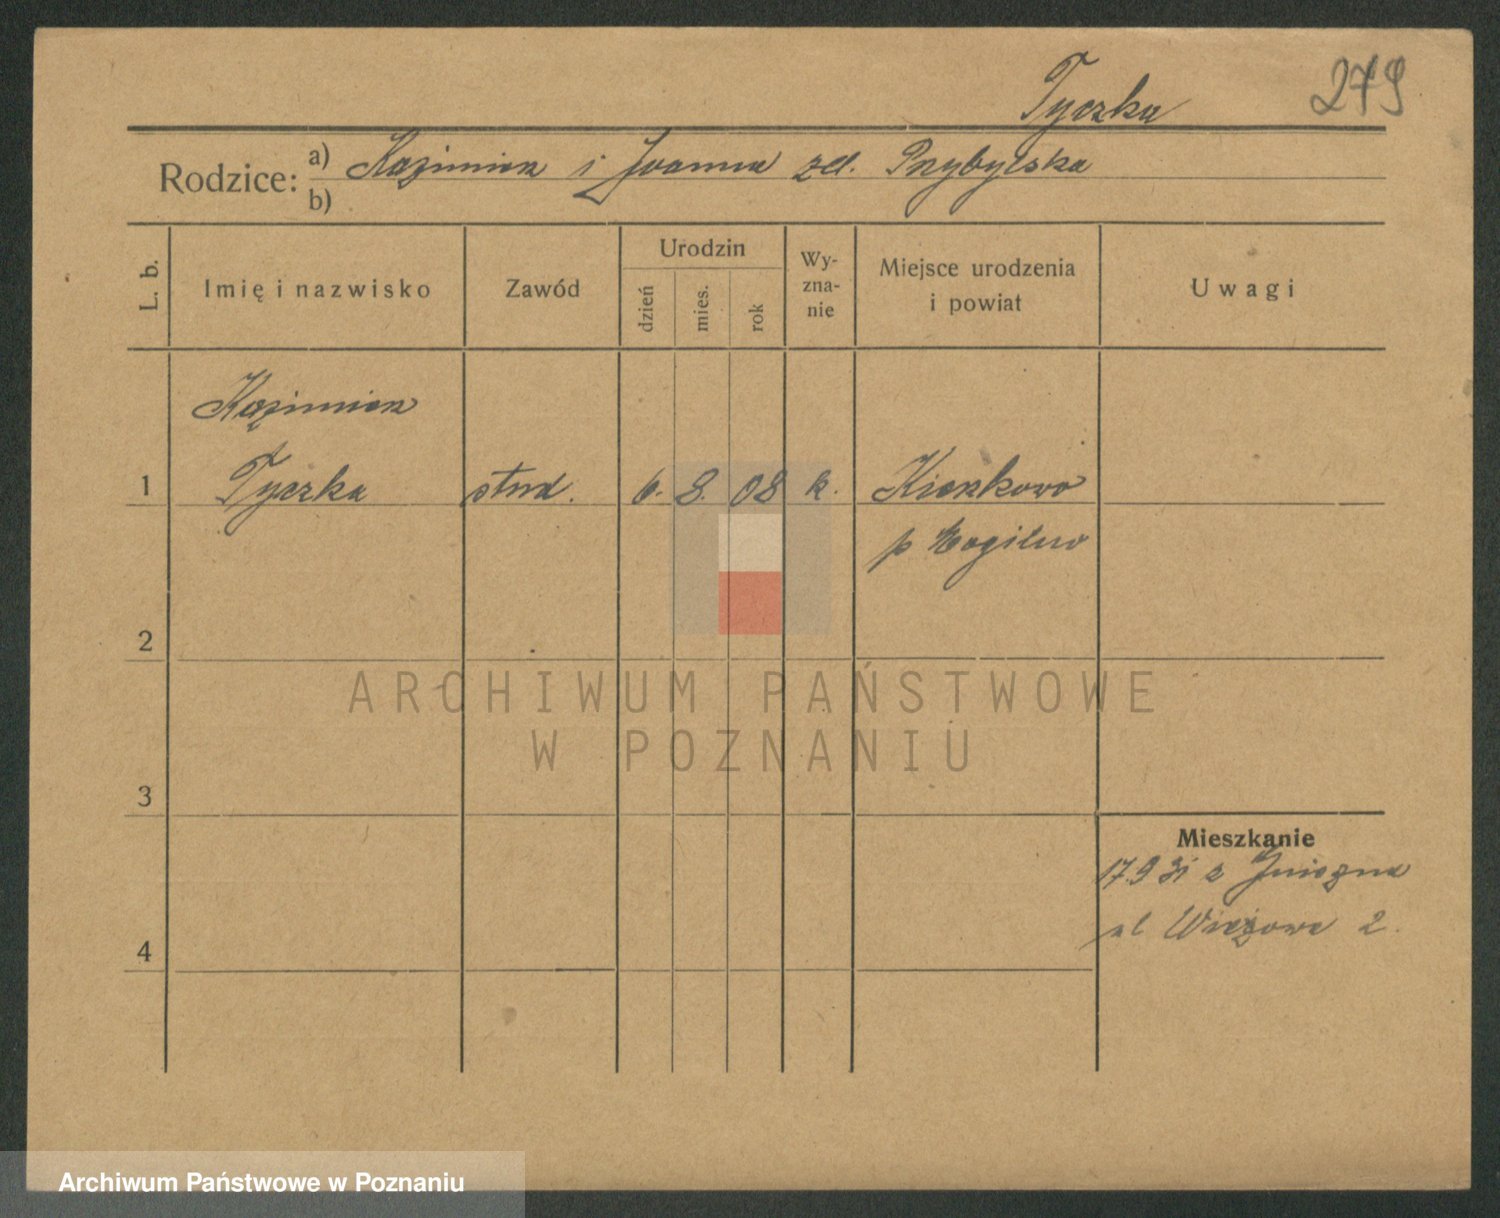 Tyczka 279
Rodzice: a) Kazimierz i Joanna zd. Przybylska
b)
L. b. Imię i nazwisko Zawód Urodzin dzień mies. rok Wy-zna-nie Miejsce urodzenia i powiat Uwagi
Kazimierz
1 Tyczka stud. 6. 8. 08 k.
p Mogilno
2
ARCHIWUM PAŃSTWOWE
W POZNANIU
3
Mieszkanie
17.9 31 z Gniezna
4 ul Wieżowa 2.
Archiwum Państwowe w Poznaniu